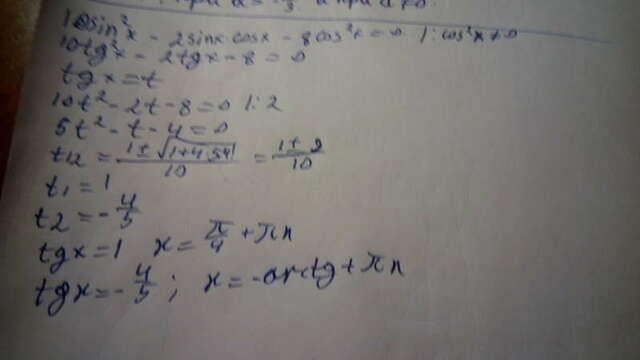 при a = - 5 и при a ≠ 0.
10sin²x - 2sinx cosx - 8cos²x = 0 | : cos²x ≠ 0
10tg²x - 2tgx - 8 = 0
tgx = t
10t² - 2t - 8 = 0 | : 2
5t² - t - 4 = 0
t12 = (1 ± √(1+4·5·4)) / 10 = (1 ± 9) / 10
t1 = 1
t2 = - 4/5
tgx = 1 x = π/4 + πn
tgx = - 4/5 ; x = - arctg + πn